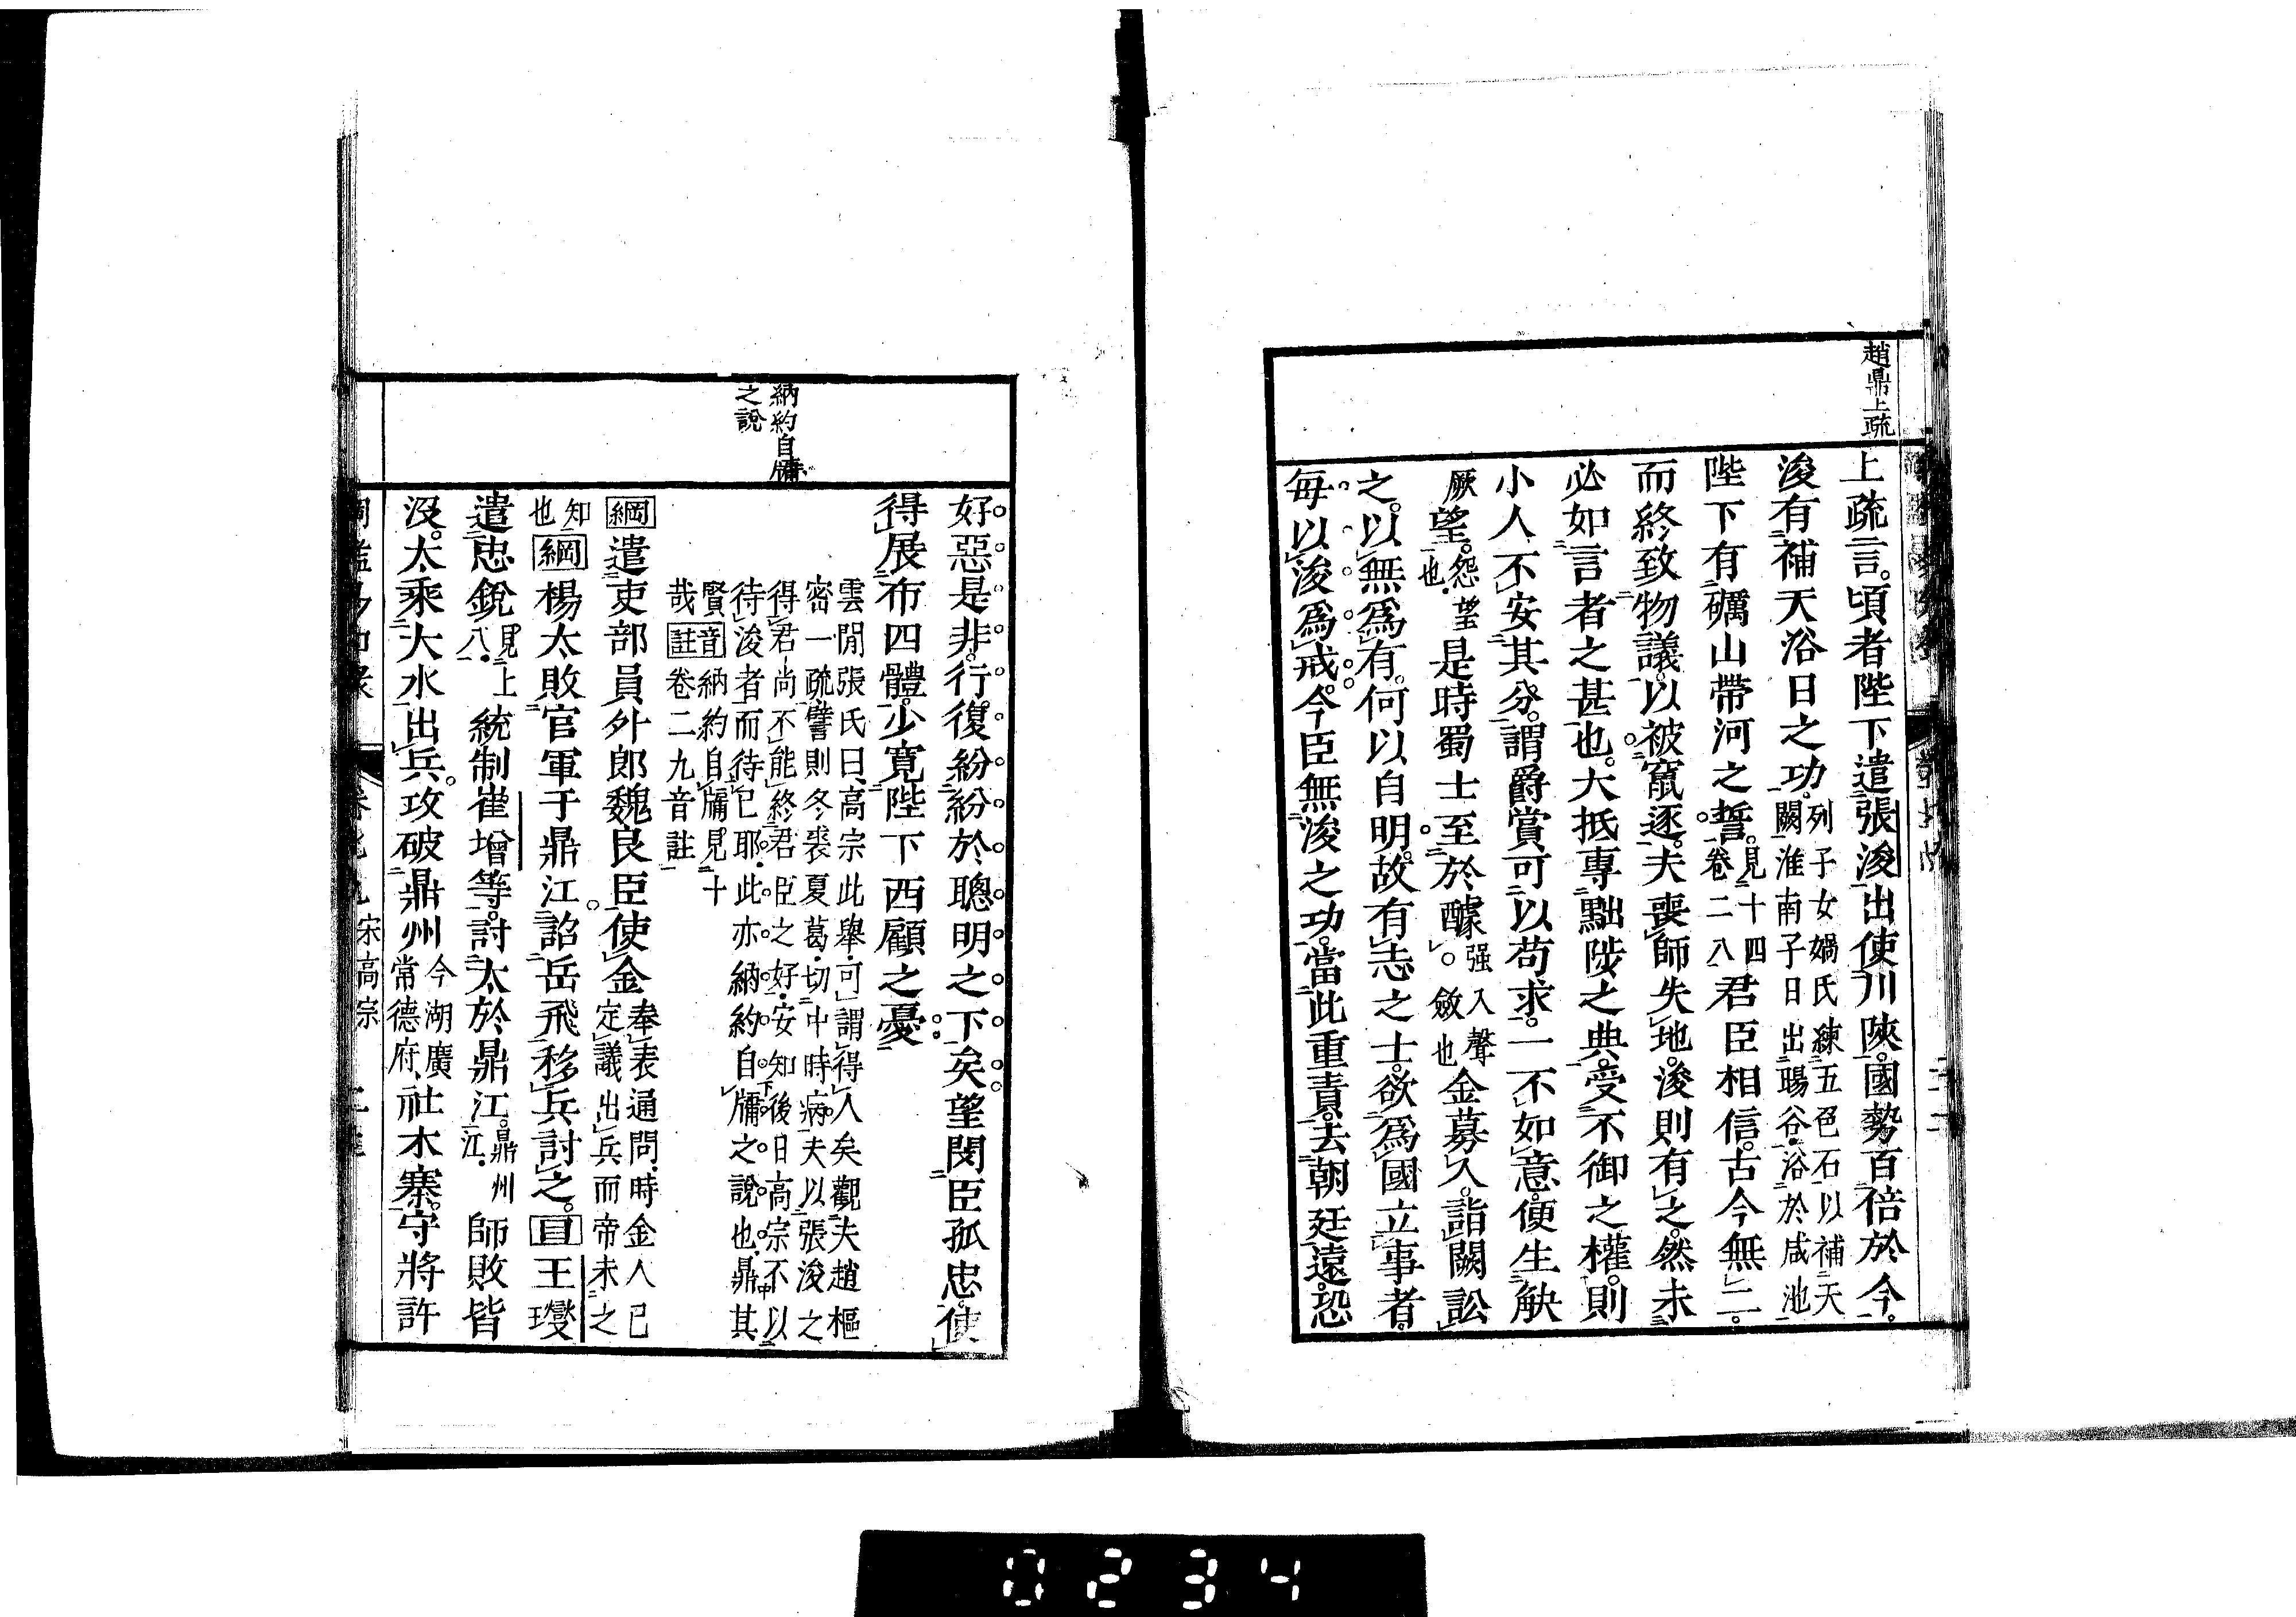 趙鼎上疏
上疏言。頃者陛下遣張浚出使川陝。國勢百倍於今。
浚有補天浴日之功。列子女媧氏練五色石以補天
闕淮南子日出暘谷浴於咸池
陛下有礪山帶河之誓。見十四
卷二八君臣相信。古今無二。
而終致物議。以被竄逐。夫喪師失地。浚則有之。然未
必如言者之甚也。大抵專黜陟之典。受不御之權。則
小人不安其分。謂爵賞可以苟求。一不如意。便生觖
厥望。怨望
也是時蜀士至於醵强入聲
斂也金募人。詣闕訟
之。以無爲有。何以自明。故有志之士。欲爲國立事者。
每以浚爲戒。今臣無浚之功。當此重責。去朝廷遠。恐
納約自牖
之說
好惡是非。行復紛紛於聰明之下矣。望閔臣孤忠。使
得展布四體。少寬陛下西顧之憂。
雲間張氏曰、高宗此舉、可謂得人矣觀夫趙樞
密一疏、譬則冬裘夏葛、切中時病、夫以張浚之
得君尚不能終君臣之好、安知後日高宗不以
待浚者而待已耶、此亦納約自牖之說也、鼎其
賢哉音註納約自牖見十
卷二九音註
綱遣吏部員外郎魏良臣使金奉表通問、時金人已
定議出兵而帝未之
知
也綱楊太敗官軍于鼎江。詔岳飛移兵討之。目王𤫉
遣忠銳見上
八統制崔增等。討太於鼎江。鼎州
江師敗皆
沒。太乘大水出兵。攻破鼎州今湖廣
常德府、社木寨。守將許
宋高宗